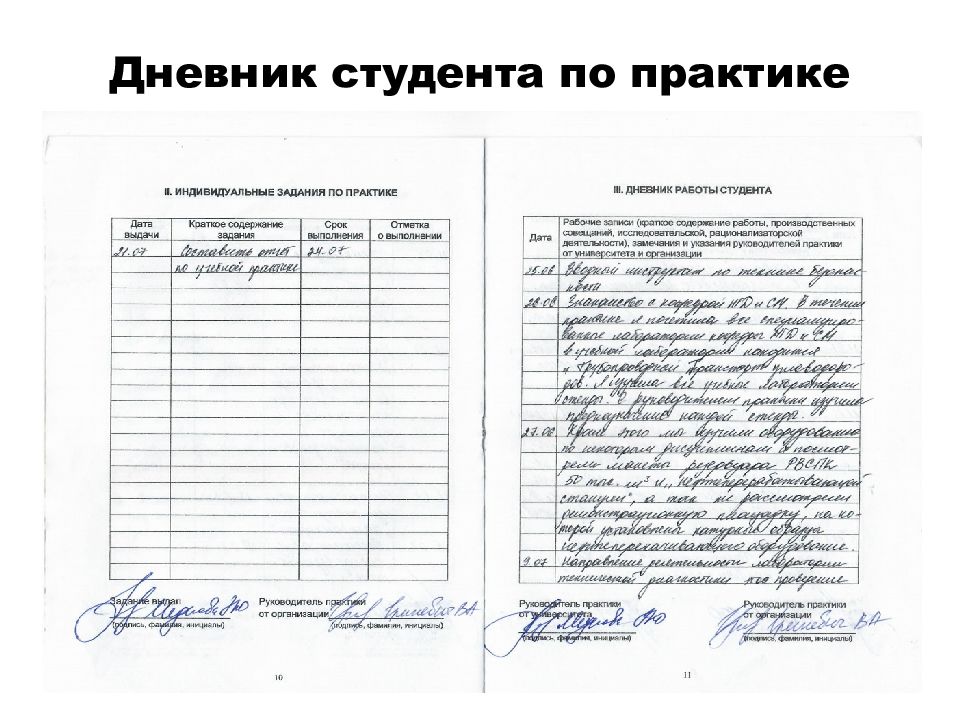 Дневник студента по практике
II. ИНДИВИДУАЛЬНЫЕ ЗАДАНИЯ ПО ПРАКТИКЕ
Дата выдачи
Краткое содержание задания
Срок выполнения
Отметка о выполнении
21.07 Составить отчет 24.07
по учебной практике
Задание выдал
(подпись, фамилия, инициалы)
Руководитель практики
от организации
(подпись, фамилия, инициалы)
10
III. ДНЕВНИК РАБОТЫ СТУДЕНТА
Дата
Рабочие записи (краткое содержание работы, производственных
совещаний, исследовательской, рационализаторской
деятельности), замечания и указания руководителей практики
от университета и организации
25.06 Вводный инструктаж по технике безопас-
ности
26.06 Знакомство с кафедрой и СМ. В течении
практике я посетила все специализиро-
ванные лаборатории кафедры и СМ
в учебной лаборатории находится
"Трубопроводный транспорт углеводоро-
дов. Я изучила все учебные лаборатории
стенды. С руководителем практики изучила
предназначение каждой стенды.
27.06 Кроме того мы изучили оборудование
по некоторым дисциплинам и посмот-
рели макеты резервуара РВСПК
50 тыс. м³ и "Нефтеперерабатывающей
станции", а так же рассмотрели
демонстрационную площадку, на ко-
торой установлены натурные образцы
нефтеперекачивающего оборудование.
9.07 Направление деятельности лаборатории
технической диагностики проведение
Руководитель практики
от университета
(подпись, фамилия, инициалы)
Руководитель практики
от организации
(подпись, фамилия, инициалы)
11